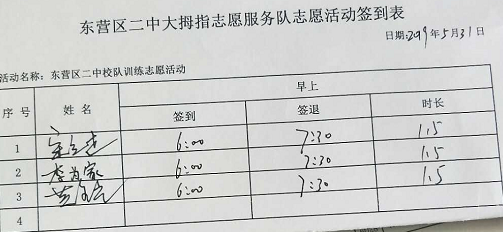 东营区二中大拇指志愿服务队志愿活动签到表
日期:2019年5月31日
活动名称：东营区二中校队训练志愿活动
序号 姓名 早上
签到 签退 时长
1 6:00 7:30 1.5
2 6:00 7:30 1.5
3 6:00 7:30 1.5
4